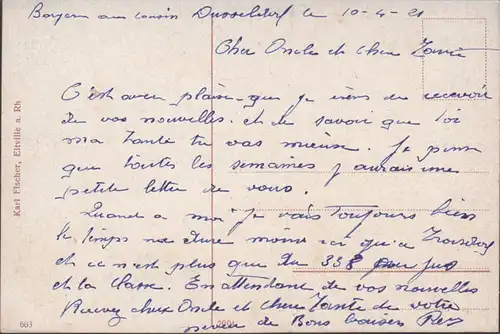 Bonjour au cousin Dusseldorf le 10-4-21
Cher Oncle et cher Tante
C'est avec plaisir que je viens de recevoir
de vos nouvelles. et de savoir que toi
ma Tante tu vas mieux. Je pense
que toutes les semaines j'aurais une
petite lettre de vous.
Quand a moi je vais toujours bien
le temps me dure moins ici qu'a Troisdorf
et ce n'est plus que du 338 jus
et la classe. En attendant de vos nouvelles
Recevez cher Oncle et cher Tante de votre
neveu de Bons baisers
Karl Fischer, Eltville a. Rh
603